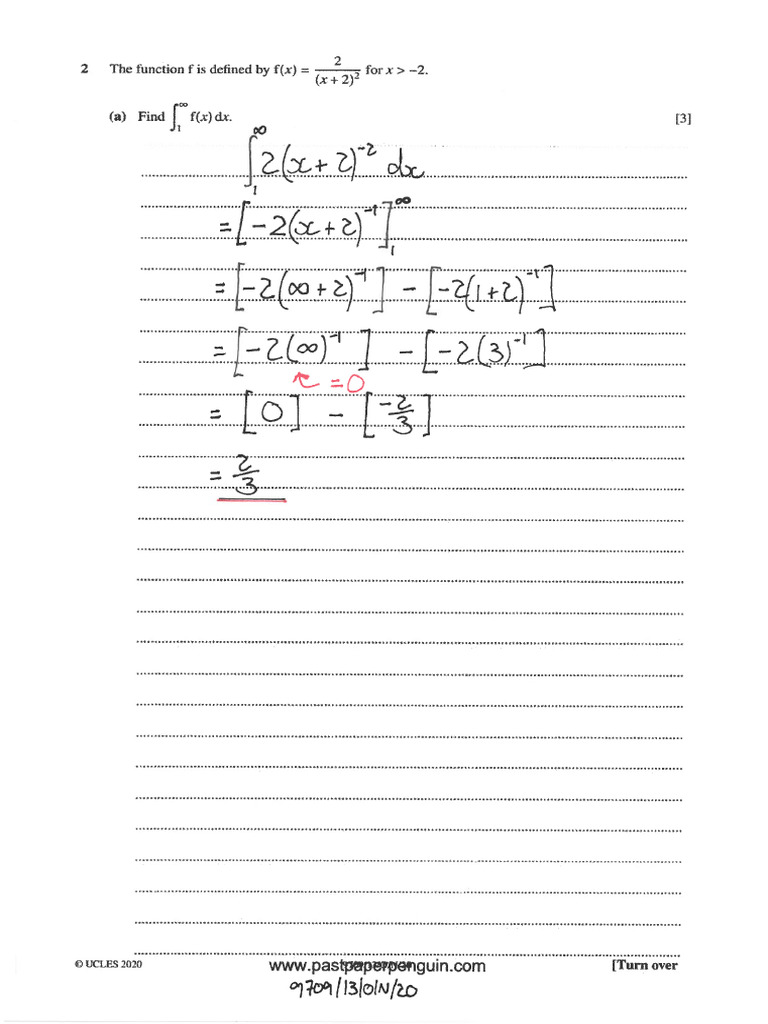 2 The function f is defined by f(x) = 2/(x + 2)² for x > −2.
(a) Find ∫₁^∞ f(x) dx. [3]
∫₁^∞ 2(x+2)⁻² dx
= [−2(x+2)⁻¹]₁^∞
= [−2(∞+2)⁻¹] − [−2(1+2)⁻¹]
= [−2(∞)⁻¹] − [−2(3)⁻¹]
↖ = 0
= [0] − [−2/3]
= 2/3
© UCLES 2020 www.pastpaperpenguin.com [Turn over
9709/13/O/N/20